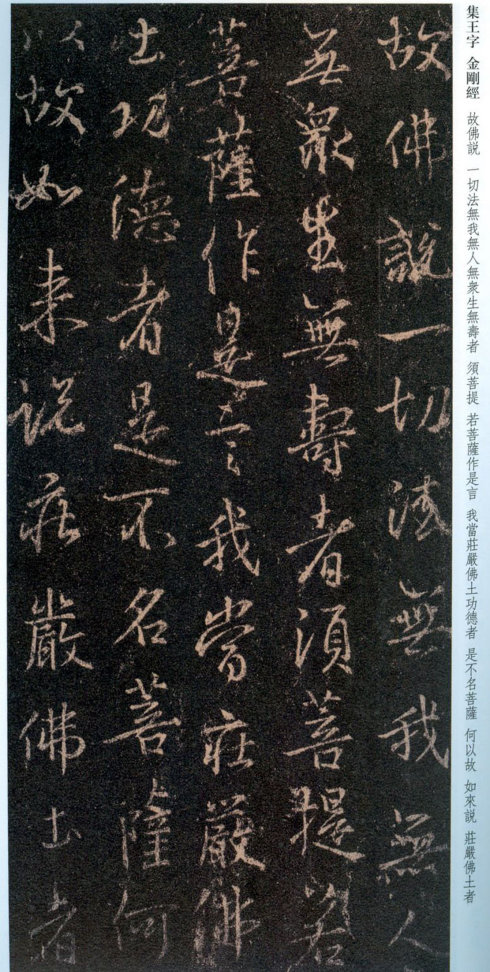 集王字 金剛經 故佛説 一切法無我無人無衆生無壽者 須菩提 若菩薩作是言 我當莊嚴佛土功德者 是不名菩薩 何以故 如來説 莊嚴佛土者
故佛說一切法無我無人
無衆生無壽者須菩提若
菩薩作是言我當莊嚴佛
土功德者是不名菩薩何
以故如来說莊嚴佛土者